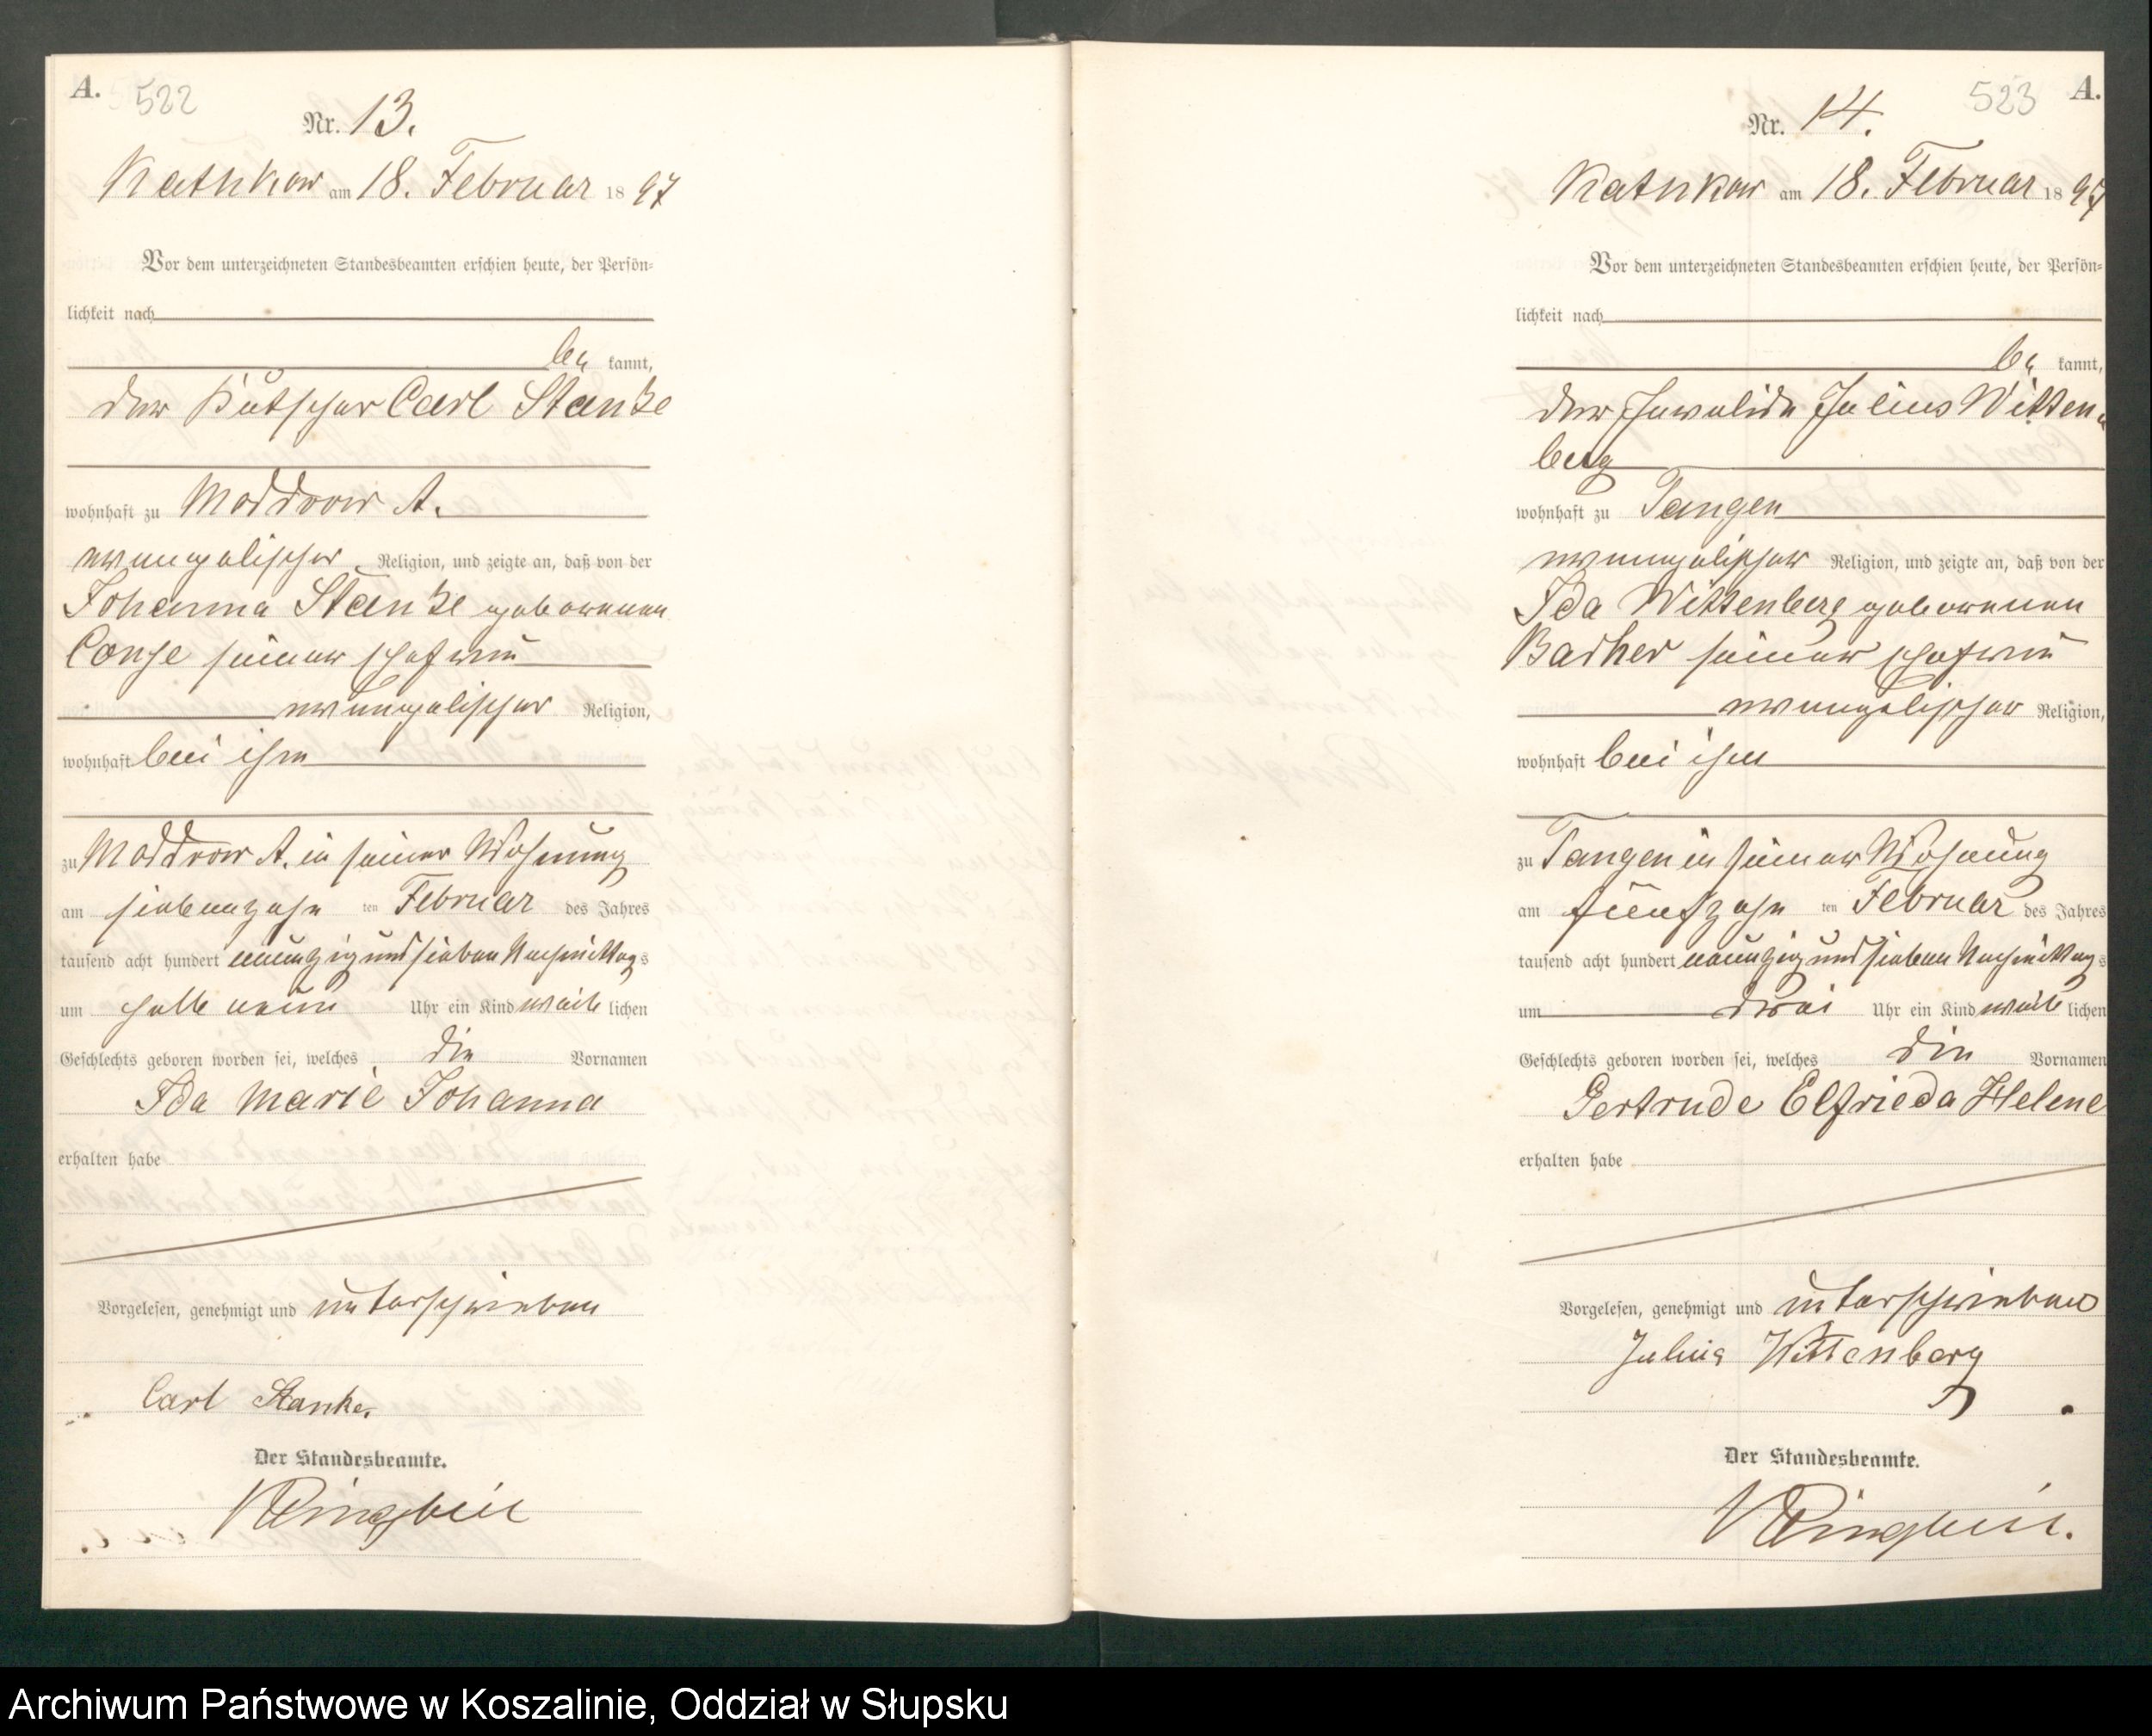 A. 522
Nr. 13.
Kathkow am 18. Februar 1897
Vor dem unterzeichneten Standesbeamten erschien heute, der Persön-
lichkeit nach
be kannt,
der Kutscher Carl Stanke
wohnhaft zu Moddrow A.
evangelischer Religion, und zeigte an, daß von der
Johanna Stanke geborenen
seiner Ehefrau
evangelischer Religion,
wohnhaft bei ihm
zu Moddrow A. in seiner Wohnung
am siebenzehn ten Februar des Jahres
tausend acht hundert neunzig und sieben Nachmittags
um halb neun Uhr ein Kind weib lichen
Geschlechts geboren worden sei, welches die Vornamen
Ida Marie Johanna
erhalten habe
Vorgelesen, genehmigt und unterschrieben
Carl Stanke.
Der Standesbeamte.
523 A.
Nr. 14.
Kathkow am 18. Februar 1897
Vor dem unterzeichneten Standesbeamten erschien heute, der Persön-
lichkeit nach
be kannt,
der Invalide Julius Witten-
berg
wohnhaft zu Tangen
evangelischer Religion, und zeigte an, daß von der
Ida Wittenberg geborenen
seiner Ehefrau
evangelischer Religion,
wohnhaft bei ihm
zu Tangen in seiner Wohnung
am fünfzehn ten Februar des Jahres
tausend acht hundert neunzig und sieben Nachmittags
um drei Uhr ein Kind weib lichen
Geschlechts geboren worden sei, welches die Vornamen
Gertrude Elfrieda Helene
erhalten habe
Vorgelesen, genehmigt und unterschrieben
Julius Wittenberg
Der Standesbeamte.
Archiwum Państwowe w Koszalinie, Oddział w Słupsku